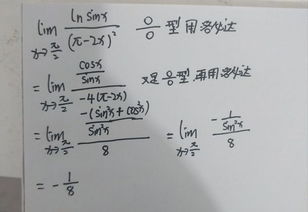 lim x→π/2 ln sinx / (π-2x)² 0/0 型用洛必达
= lim x→π/2 (cosx/sinx) / (-4(π-2x)) 又是 0/0 型再用洛必达
= lim x→π/2 (-(sin²x+cos²x)/sin²x) / 8 = lim x→π/2 (-1/sin²x) / 8
= -1/8